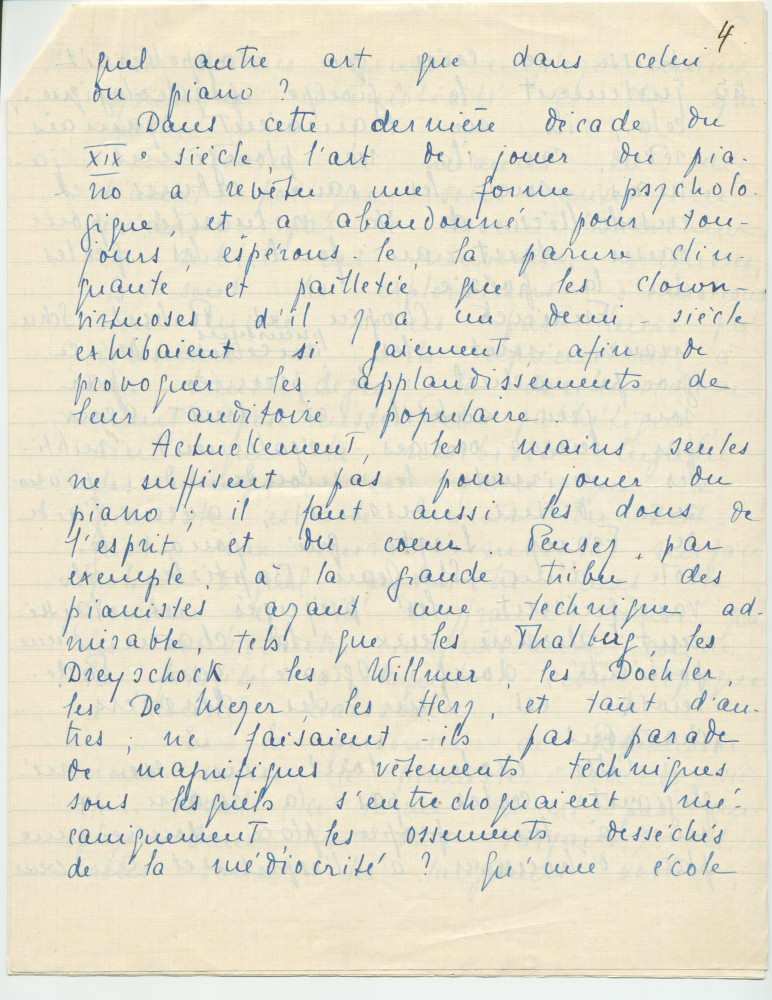 4
quel autre art que dans celui
du piano ?
Dans cette dernière décade du
XIXe siècle, l'art de jouer du pia-
no a revêtu une forme psycholo-
gique et a abandonné pour tou-
jours, espérons-le, la parure clin-
quante et pailletée que les clown-
virtuoses d'il y a un demi-siècle
exhibaient si gaiement, afin de
provoquer les applaudissements de
leur auditoire populaire.
Actuellement, les mains seules
ne suffisent pas pour jouer du
piano ; il faut aussi les dons de
l'esprit et du coeur. Pensez, par
exemple, à la grande tribu des
pianistes ayant une technique ad-
mirable, tels que les Thalberg, les
Dreyschock, les Willmer, les Doehler,
les De Meyer, les Herz, et tant d'au-
tres ; ne faisaient-ils pas parade
de magnifiques vêtements techniques
sous lesquels s'entrechoquaient mé-
caniquement les ossements desséchés
de la médiocrité ? Qu'une école